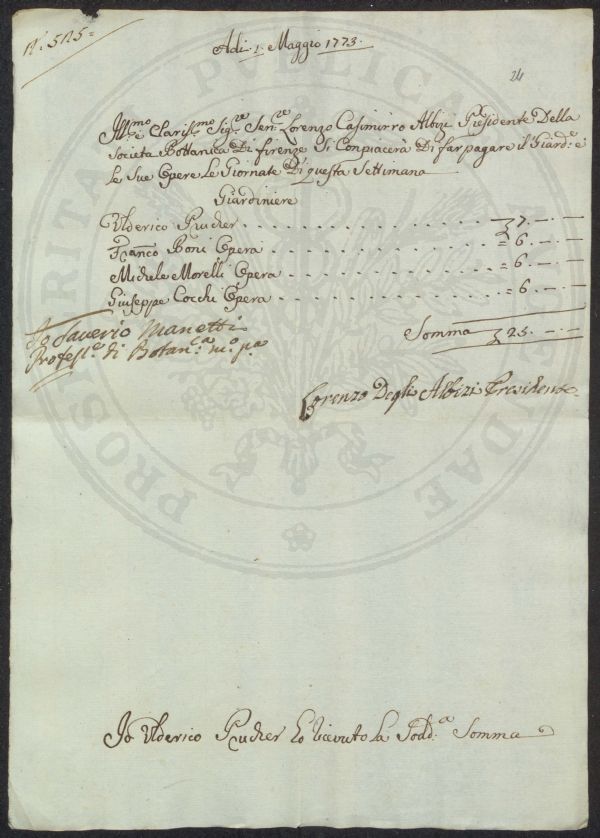 N.º 515=
Adi 1. Maggio 1773.
24
Ill.mo e Claris.mo Sig.re Sen.re Lorenzo Casimirro Albizi Presidente Della
Societa Bottanica Di firenze Si Conpiacerà Di far pagare il Giard.e e
le Sue Opere Le Giornate Di questa Settimana
Giardiniere
Ulderico Prucher . . . . . . . 7. — . —
Franco Boni Opera . . . . . . = 6. — . —
Michele Morelli Opera . . . . . = 6. — . —
Giuseppe Cocchi Opera . . . . . = 6. — . —
Somma 25. — . —
Io Saverio Manetti
Profess.e di Botan.ca m.o p.a
Lorenzo Degli Albizi Presidente
Io Ulderico Prucher Ho ricevuto La Sodd.a Somma
PROSPERITATI PUBLICAE AUGENDAE